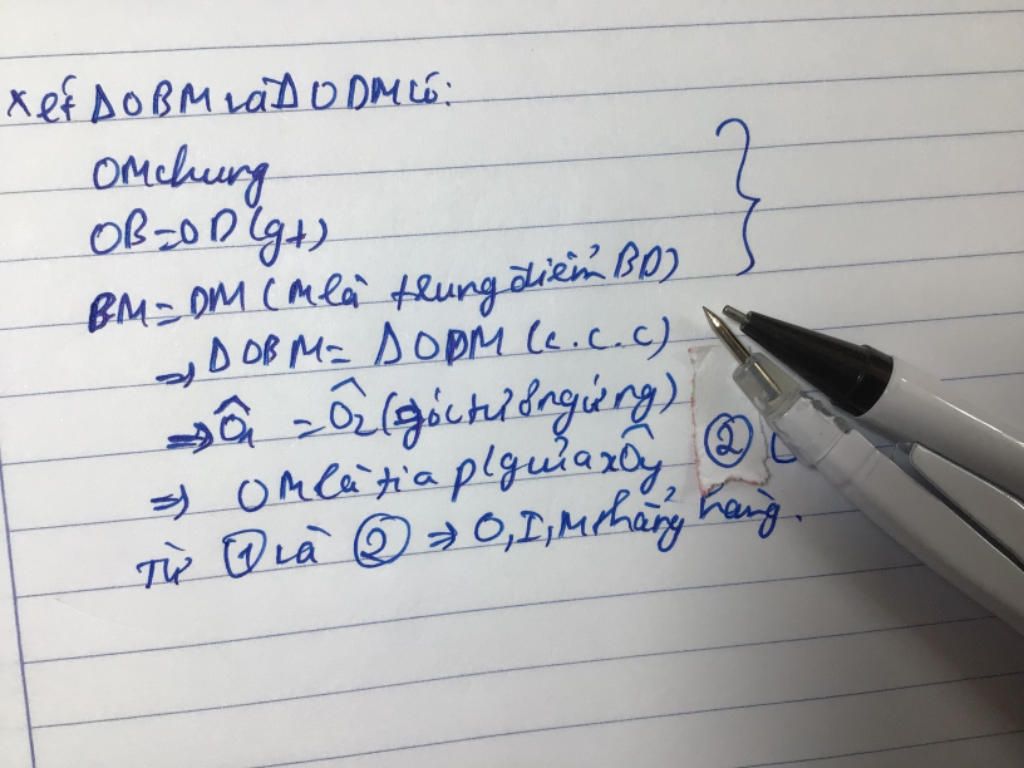 Xét ΔOBM và ΔODM có:
OM chung
OB = OD (gt)
BM = DM (M là trung điểm BD)
⇒ ΔOBM = ΔODM (c.c.c)
⇒ Ô1 = Ô2 (góc tương ứng)
⇒ OM là tia p/g của xÔy ②
Từ ① và ② ⇒ O, I, M thẳng hàng.